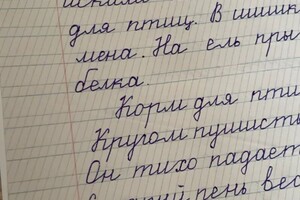 для птиц. В шишк
мена. На ель пры
белка.
Корм для пти
Кругом пушисты
Он тихо падает
пень вес